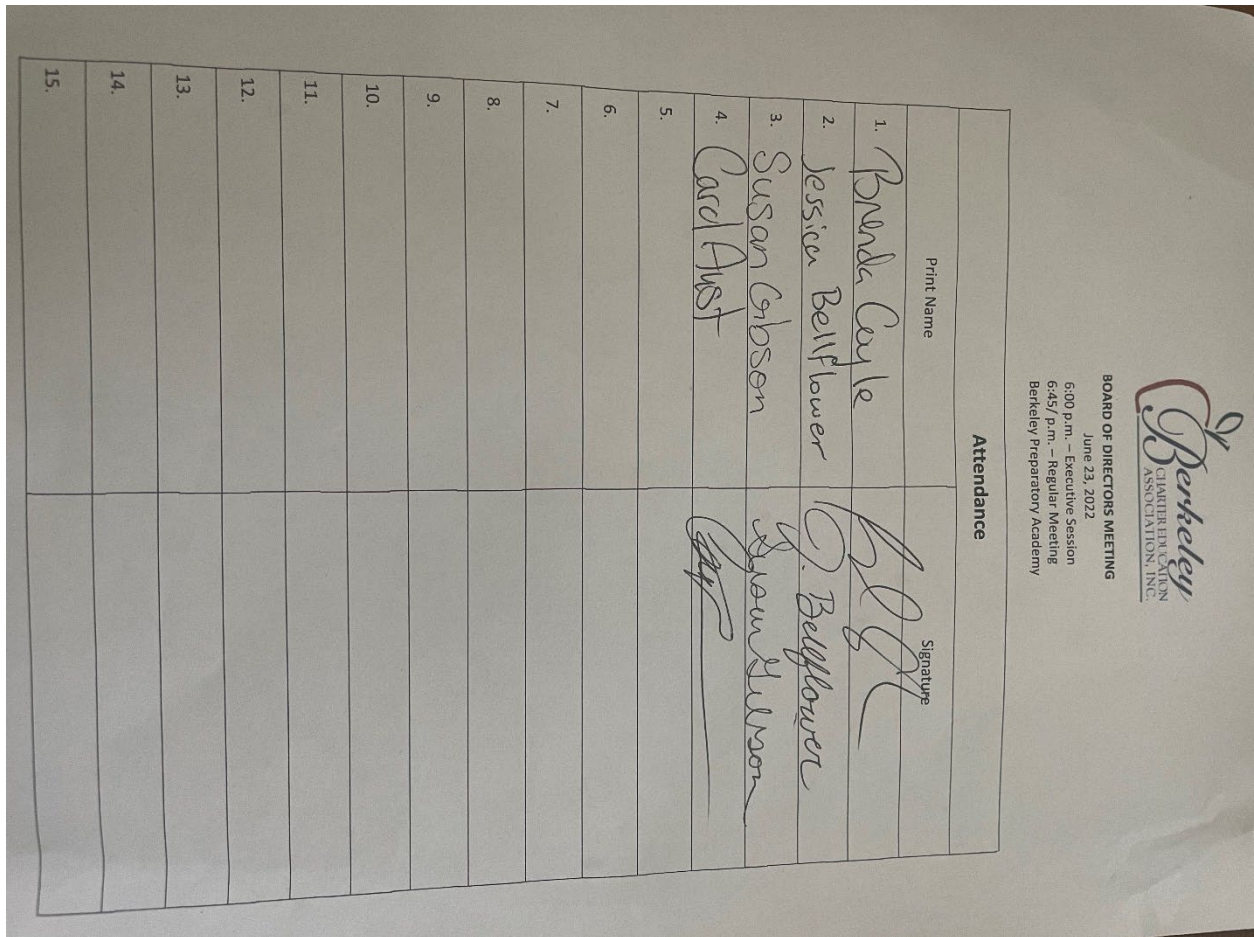 Berkeley
CHARTER EDUCATION
ASSOCIATION, INC.
BOARD OF DIRECTORS MEETING
June 23, 2022
6:00 p.m. – Executive Session
6:45/ p.m. – Regular Meeting
Berkeley Preparatory Academy
Attendance
Print Name Signature
1. Brenda Coyle
2. Jessica Bellflower J. Bellflower
3. Susan Gibson Susan Gibson
4. Carol Aust
5.
6.
7.
8.
9.
10.
11.
12.
13.
14.
15.